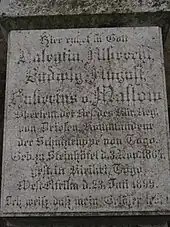 Hier ruht in Gott
Valentin, Albrecht,
Ludwig, August,
Valerius v. Massow
Oberleut. der Res. des Kür. Reg.
von Driesen, Kommandeur
der Schutztruppe von Togo.
Geb. zu Steinhöfel d. 3. Nov. 1864,
gest. in Bismark, Togo,
West Afrika d. 23. Juli 1899.
Ich weiß, daß mein Erlöser lebt.